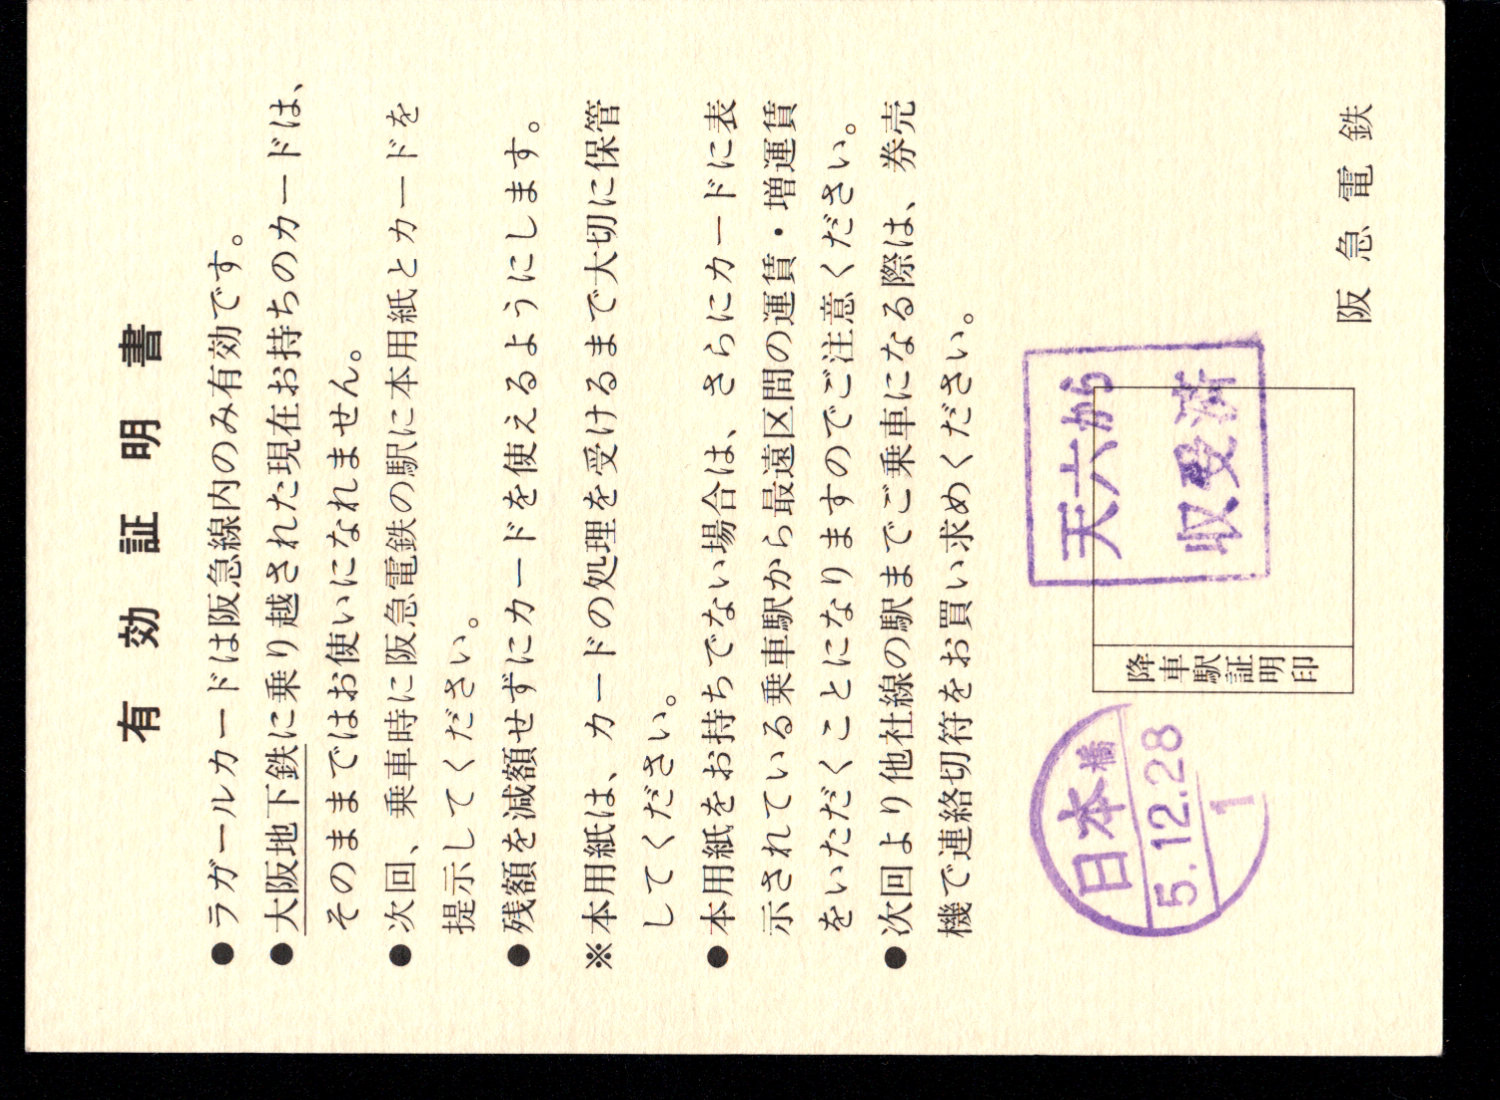 有効証明書
●ラガールカードは阪急線内のみ有効です。
●大阪地下鉄に乗り越された現在お持ちのカードは、
そのままではお使いになれません。
●次回、乗車時に阪急電鉄の駅に本用紙とカードを
提示してください。
●残額を減額せずにカードを使えるようにします。
※本用紙は、カードの処理を受けるまで大切に保管
してください。
●本用紙をお持ちでない場合は、さらにカードに表
示されている乗車駅から最遠区間の運賃・増運賃
をいただくことになりますのでご注意ください。
●次回より他社線の駅までご乗車になる際は、券売
機で連絡切符をお買い求めください。
日本橋
5.12.28
1
降車駅証明印
天六から
収受済
阪急電鉄